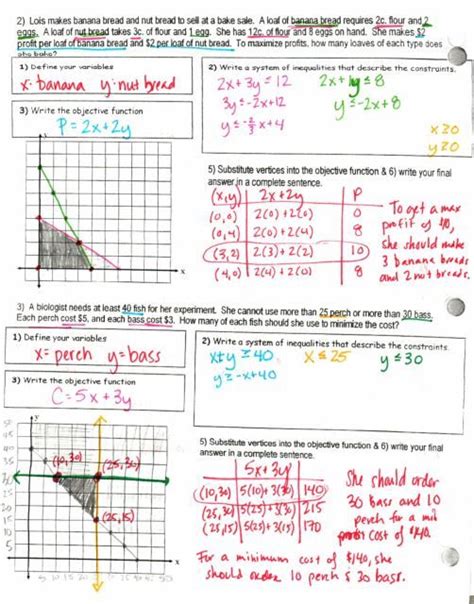 2) Lois makes banana bread and nut bread to sell at a bake sale. A loaf of banana bread requires 2c. flour and 2
eggs. A loaf of nut bread takes 3c. of flour and 1 egg. She has 12c. of flour and 8 eggs on hand. She makes $2
profit per loaf of banana bread and $2 per loaf of nut bread. To maximize profits, how many loaves of each type does
she bake?
1) Define your variables
x: banana y: nut bread
3) Write the objective function
P = 2x + 2y
2) Write a system of inequalities that describe the constraints.
2x + 3y ≤ 12 2x + 1y ≤ 8
3y ≤ -2x + 12 y ≤ -2x + 8
y ≤ -2/3 x + 4
x ≥ 0
y ≥ 0
y
x
5) Substitute vertices into the objective function & 6) write your final
answer in a complete sentence.
(x,y) 2x + 2y P
(0,0) 2(0) + 2(0) 0
(0,4) 2(0) + 2(4) 8
(3,2) 2(3) + 2(2) 10
(4,0) 2(4) + 2(0) 8
To get a max
profit of $10,
she should make
3 banana breads
and 2 nut breads.
3) A biologist needs at least 40 fish for her experiment. She cannot use more than 25 perch or more than 30 bass.
Each perch cost $5, and each bass cost $3. How many of each fish should she use to minimize the cost?
1) Define your variables
x = perch y = bass
3) Write the objective function
C = 5x + 3y
2) Write a system of inequalities that describe the constraints.
x + y ≥ 40 x ≤ 25 y ≤ 30
y ≥ -x + 40
y
(10,30) (25,30)
(25,15)
x
5 10 15 20 25 30 35 40 45 50
5) Substitute vertices into the objective function & 6) write your final
answer in a complete sentence.
5x + 3y
(10,30) 5(10) + 3(30) 140
(25,30) 5(25) + 3(30) 215
(25,15) 5(25) + 3(15) 170
She should order
30 bass and 10
perch for a min
cost of $140.
For a minimum cost of $140, she
should order 10 perch & 30 bass.